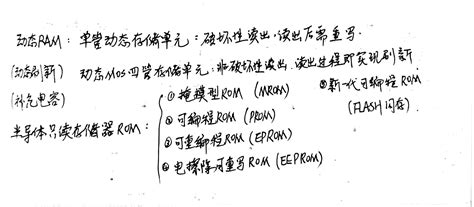 动态RAM：单管动态存储单元：破坏性读出，读出后需重写
(动态刷新) 动态MOS四管存储单元：非破坏性读出，读出过程即实现刷新
(补充电容)
半导体只读存储器ROM：
①掩模型ROM (MROM)
②可编程ROM (PROM)
③可重编程ROM (EPROM)
④电擦除可重写ROM (EEPROM)
⑤新一代可编程ROM
(FLASH闪存)